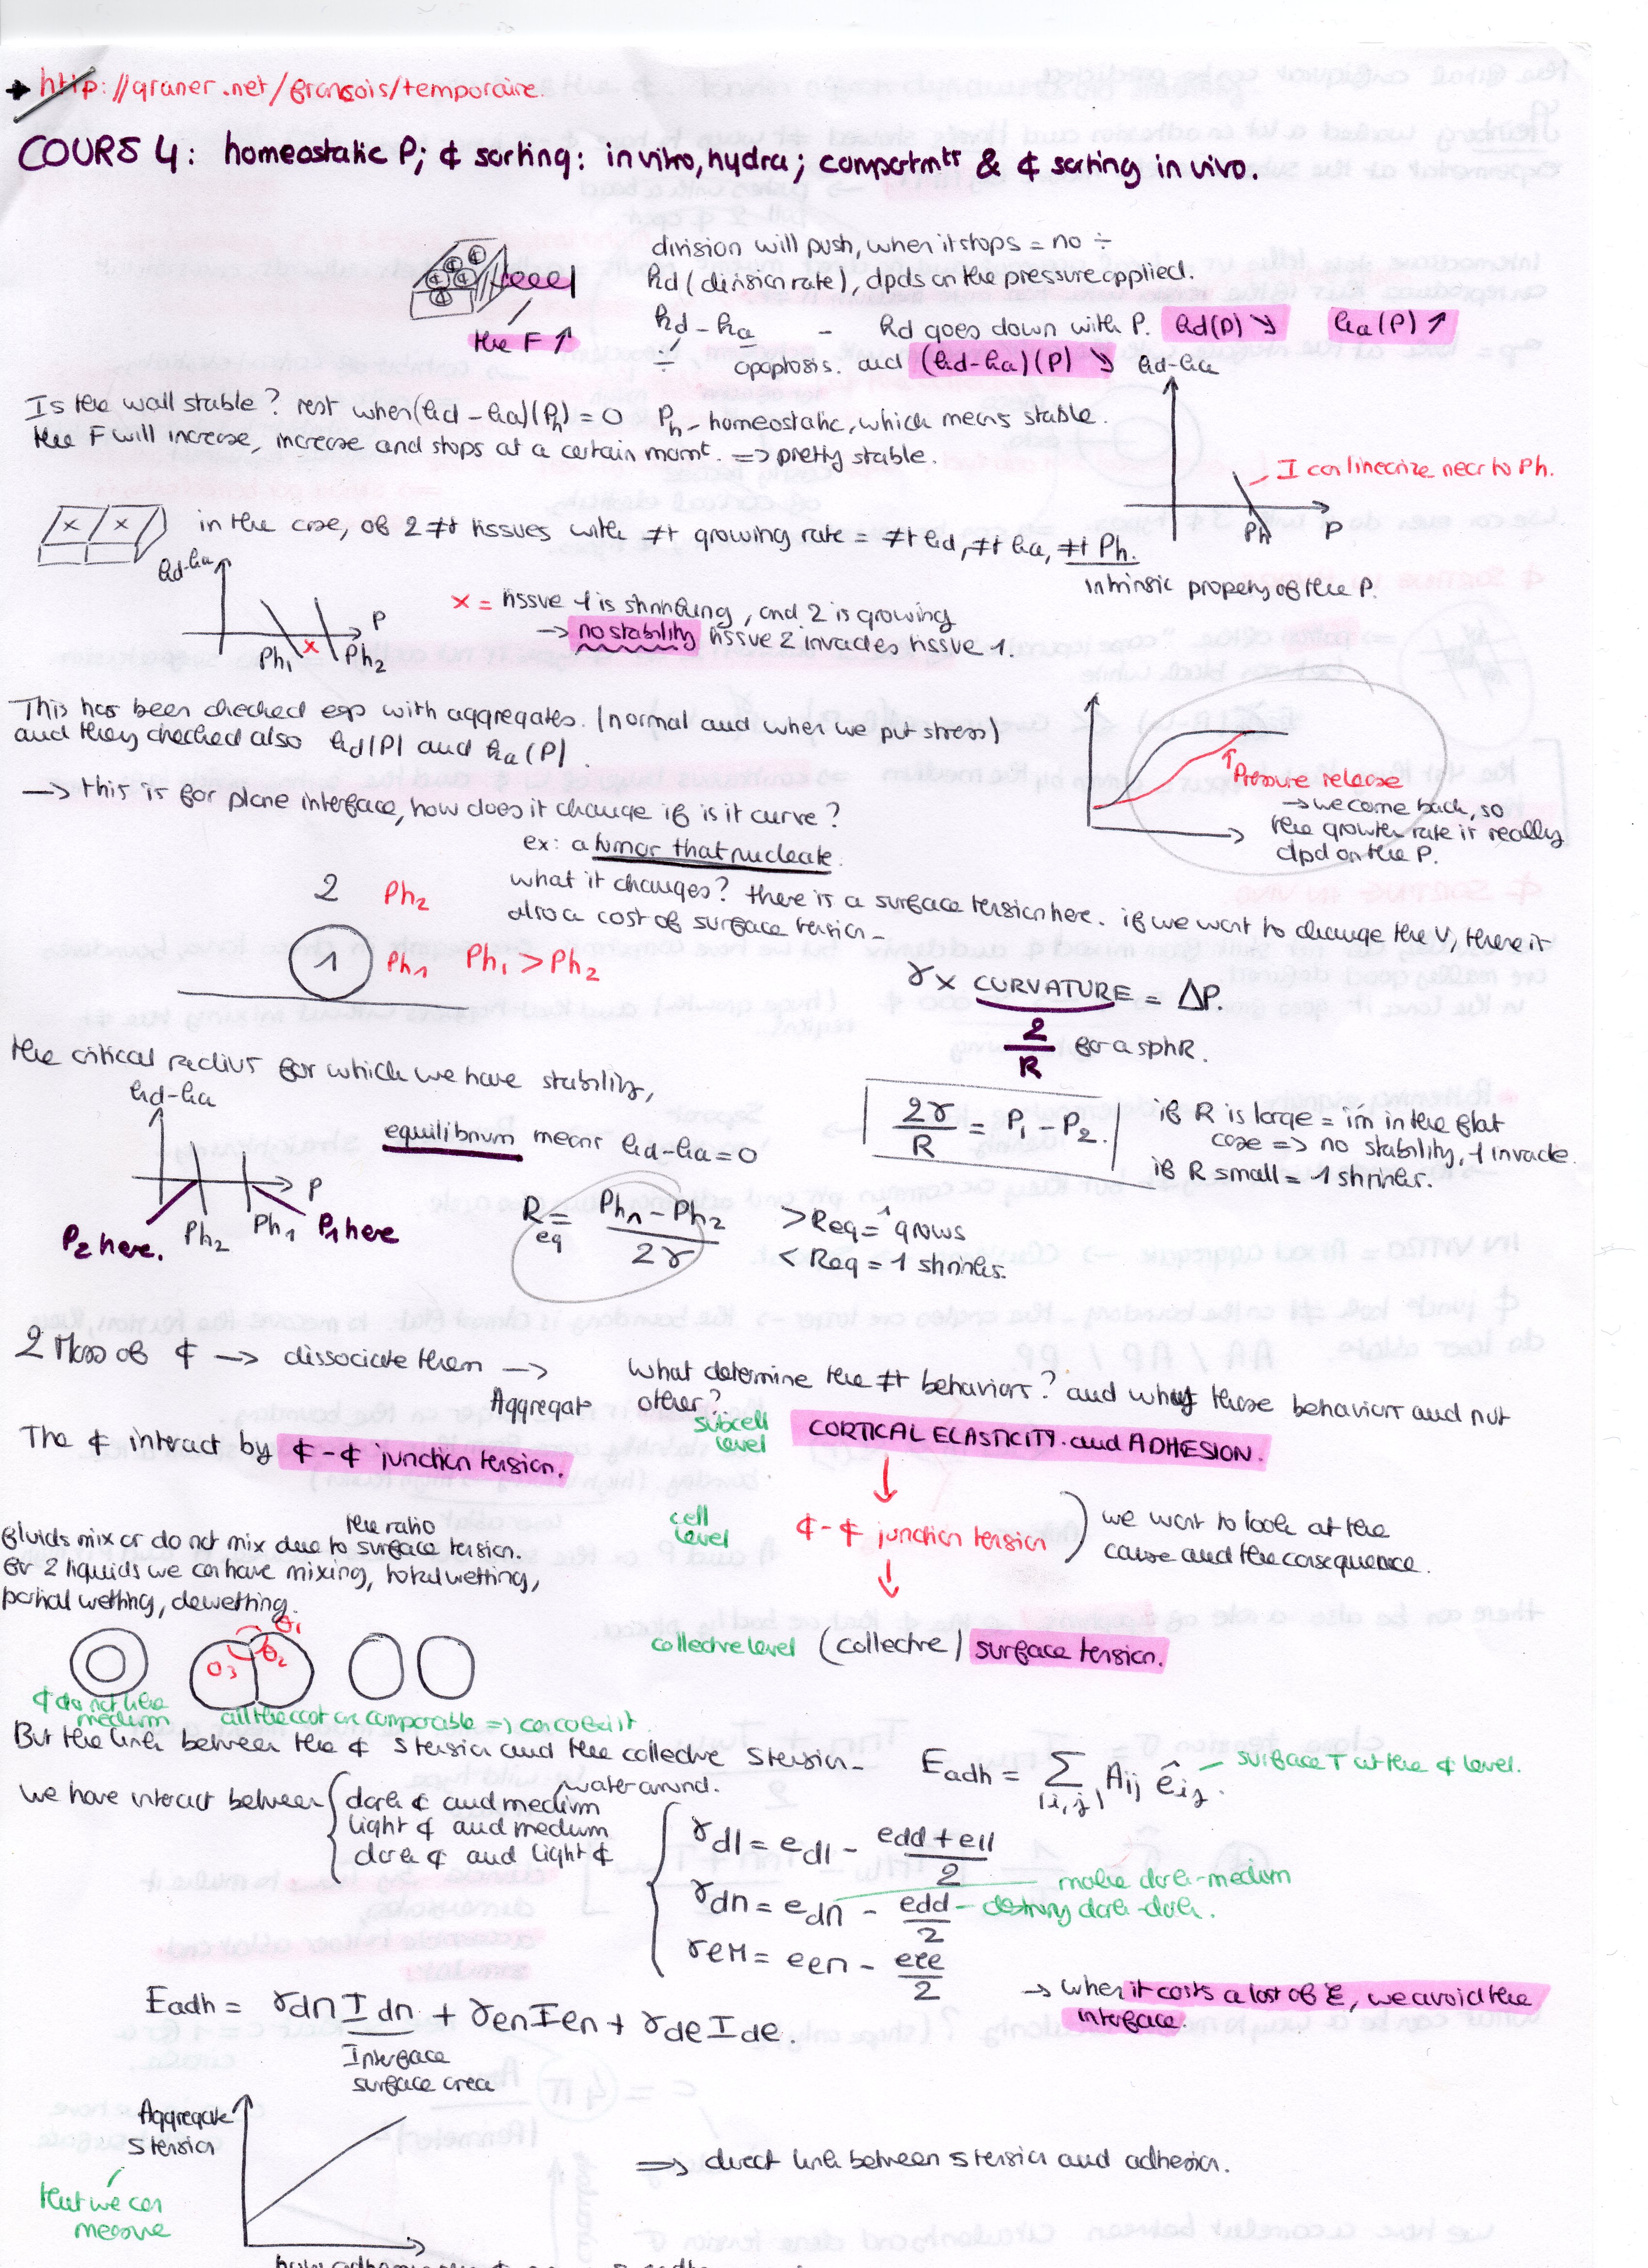 → http://graner.net/francois/temporaire.
COURS 4: homeostatic P; ¢ sorting: in vitro, hydra; compartmts & ¢ sorting in vivo.
division will push, when it stops = no ÷
kd (division rate), dpds on the pressure applied.
the F ↑
kd - ka - kd goes down with P. kd(P) ↘ ka(P) ↑
÷ apoptosis. and (kd-ka)(P) ↘
kd-ka
Is the wall stable? rest when (kd - ka)(Ph) = 0 Ph - homeostatic, which means stable.
the F will increase, increase and stops at a certain momt. => pretty stable.
I can linearize near to Ph.
Ph P
in the case, of 2 ≠t tissues with ≠t growing rate = ≠t kd, ≠t ka, ≠t Ph.
intrinsic propery of the P.
kd-ka
P
Ph1 x Ph2
x = tissue 1 is shrinking, and 2 is growing
→ no stability tissue 2 invades tissue 1.
This has been checked exp with aggregates. (normal and when we put stress)
and they checked also kd(P) and ka(P).
Pressure release
→ we come back, so
the growth rate it really
dpd on the P.
→ this is for plane interface, how does it change if is it curve?
ex: a tumor that nucleate.
2 Ph2
1 Ph1 Ph1 > Ph2
what it changes? there is a surface tension here. if we want to change the V, there it
also a cost of surface tension -
γ x CURVATURE = ΔP.
2/R for a sphR.
the critical radius for which we have stability,
kd-ka
P
P2 here. Ph2 Ph1 P1 here
equilibrium means kd-ka = 0
2γ/R = P1 - P2.
if R is large = im in the flat
case => no stability, 1 invade.
if R small = 1 shrinks.
Req = (Ph1 - Ph2)/2γ
> Req = 1 grows
< Req = 1 shrinks.
2 Mass of ¢ → dissociate them →
Aggregate
What determine the ≠t behaviors? and why these behaviors and not
other?
The ¢ interact by ¢-¢ junction tension.
subcell level
CORTICAL ELASTICITY and ADHESION.
↓
cell level
¢-¢ junction tension
we want to look at the
cause and the consequence.
↓
collective level (collective) surface tension.
the ratio
fluids mix or do not mix due to surface tension.
or 2 liquids we can have mixing, total wetting,
partial wetting, dewetting.
θ1 θ2 θ3
¢ do not like medium
all the cost are comparable => can coexist.
But the link between the ¢ s tension and the collective s tension -
Eadh = Σ(i,j) Aij êij.
surface T at the ¢ level.
water around.
We have interact between { dark ¢ and medium
light ¢ and medium
dark ¢ and light ¢
γdl = edl - (edd + ell)/2
γdM = edM - edd/2
make dark-medium
destroy dark-dark.
γlM = elM - ell/2
Eadh = γdM IdM + γlM IlM + γdl Idl.
Interface
surface area
→ when it costs a lost of E, we avoid the
interface.
Aggregate
s tension
that we can
measure
=> direct link between s tension and adhesion.